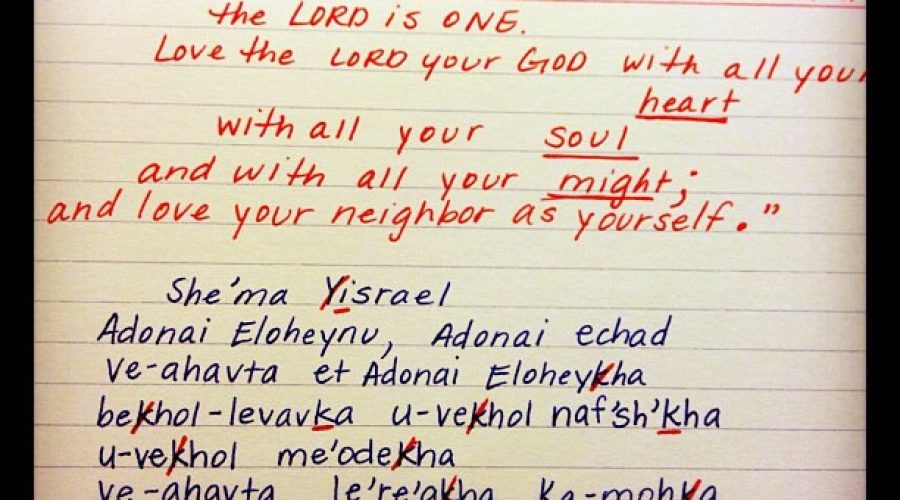 the LORD is ONE.
Love the LORD your GOD with all your
heart
with all your soul
and with all your might;
and love your neighbor as yourself."
She'ma Yisrael
Adonai Eloheynu, Adonai echad
Ve-ahavta et Adonai Eloheykha
bekhol-levavka u-vekhol naf'sh'kha
u-vekhol me'odekha
ve-ahavta le're'akha ka-mohka